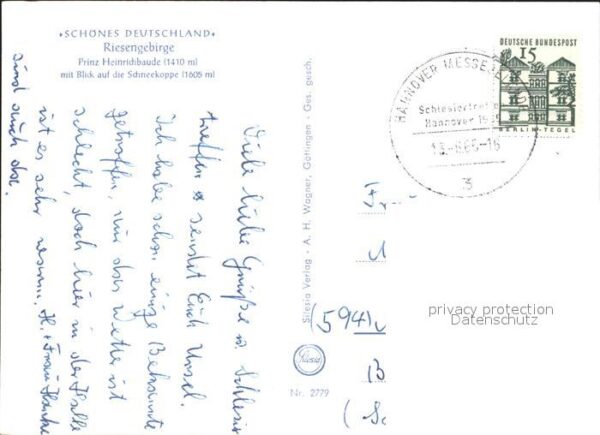 •SCHÖNES DEUTSCHLAND•
Riesengebirge
Prinz Heinrichbaude (1410 m)
mit Blick auf die Schneekoppe (1605 m)
Viele liebe Grüße v. Schlesier
treffen sendet Euch Ursel.
Ich habe schon einige Bekannte
getroffen, nur das Wetter ist
schlecht, doch hier in der Halle
ist es sehr warm. H. + Frau
sind auch da.
Silesia Verlag - A. H. Wagner, Göttingen - Ges. gesch.
Silesia
Nr. 2779
DEUTSCHE BUNDESPOST
15
BERLIN-TEGEL
HANNOVER MESSEGEL
Schlesiertref
Hannover 19
13.-6.65-16
3
(594)
B
privacy protection
Datenschutz